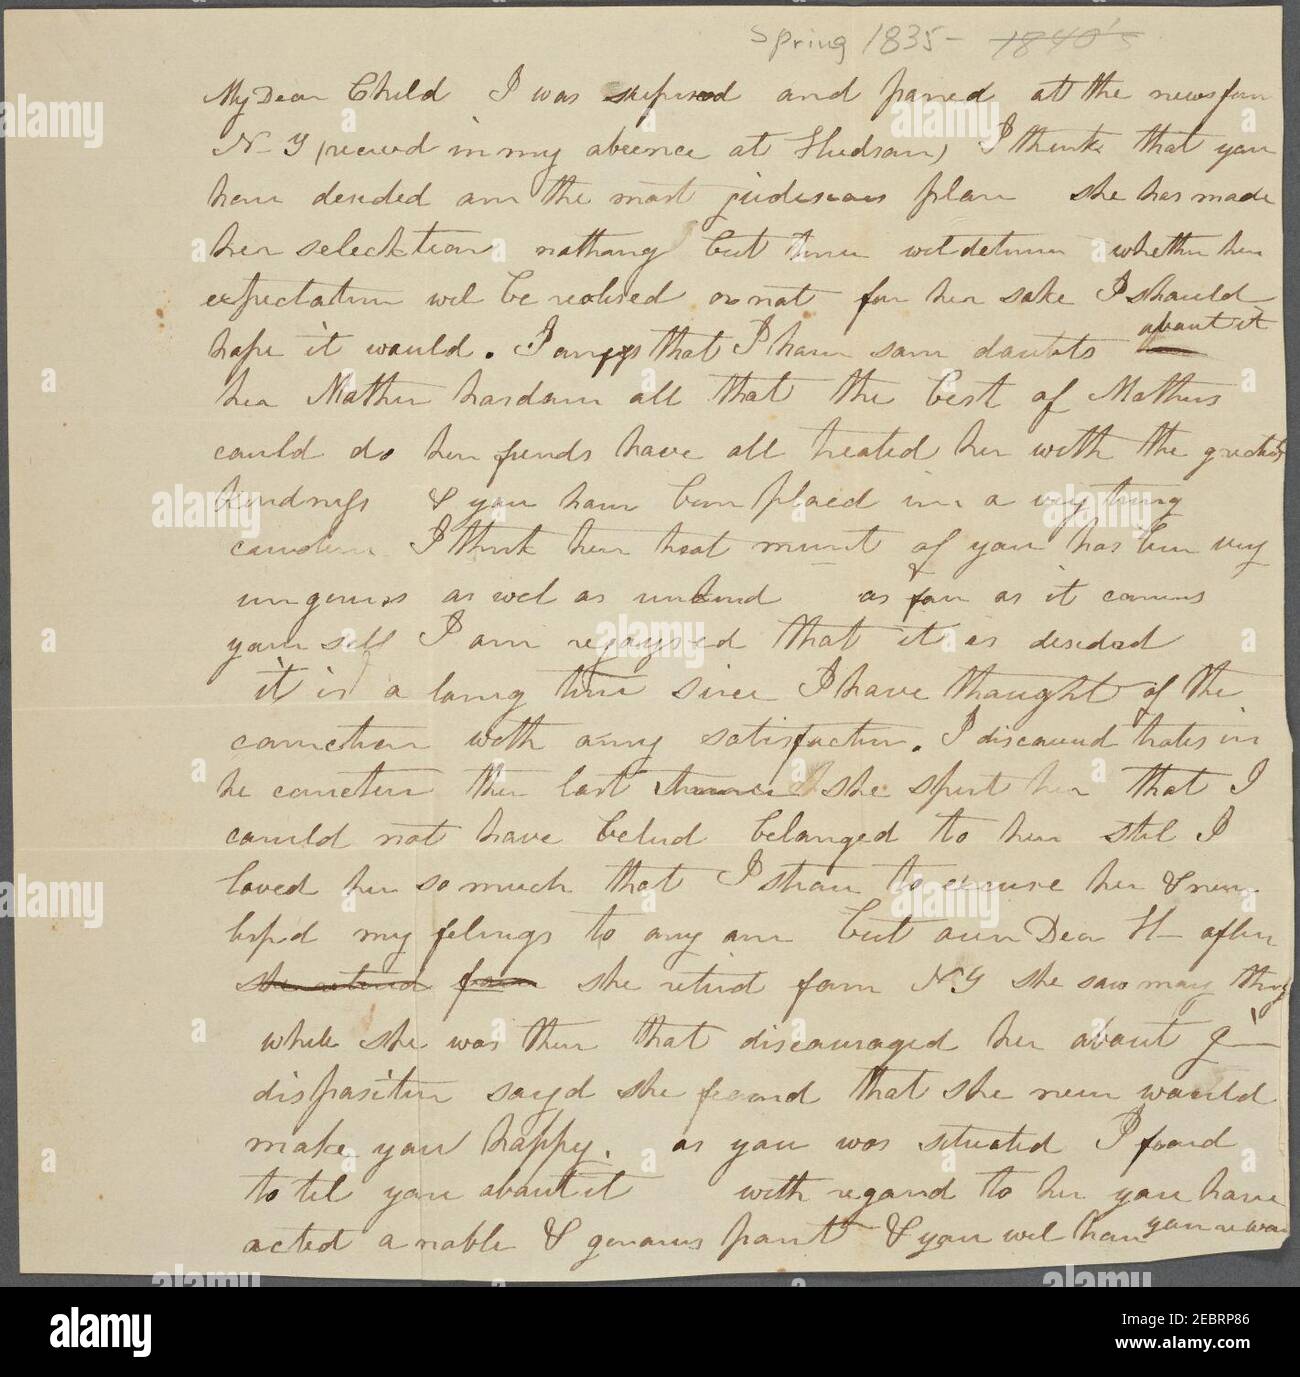 Spring 1835 - 1840's
My Dear Child I was suprised and pained at the news from
N-Y (receved in my absence at Hudson) I think that you
have desided on the most judisious plan she has made
her selecktion nothing but time wil determin whether her
expectation wil be realised or not for her sake I should
hope it would. I am that I have som doubts about it
her Mother has don all that the best of Mothers
could do her frends have all treated her with the gratest
kindness & you have ben placed in a very trying
I think her treat ment of you has ben very
ungenros as wel as unkind as far as it concerns
your self I am that it is desided
it is a long time since I have thought of the
conection with any satisfaction. I discoverd traits in
he then last she spent her that I
could not have belevd belonged to her stil I
loved her so much that I strove to excuse her & never
lispd my felings to any one but our Dear H- after
she returnd from she returnd from N Y she saw many things
while she was ther that discouraged her about G-
disposition sayd she feared that she never would
make you happy. as you was situated I feard
to tel you about it with regard to her you have
acted a noble & generous part & you wil have your rewar
alamy
Image ID: 2EBRP86
www.alamy.com